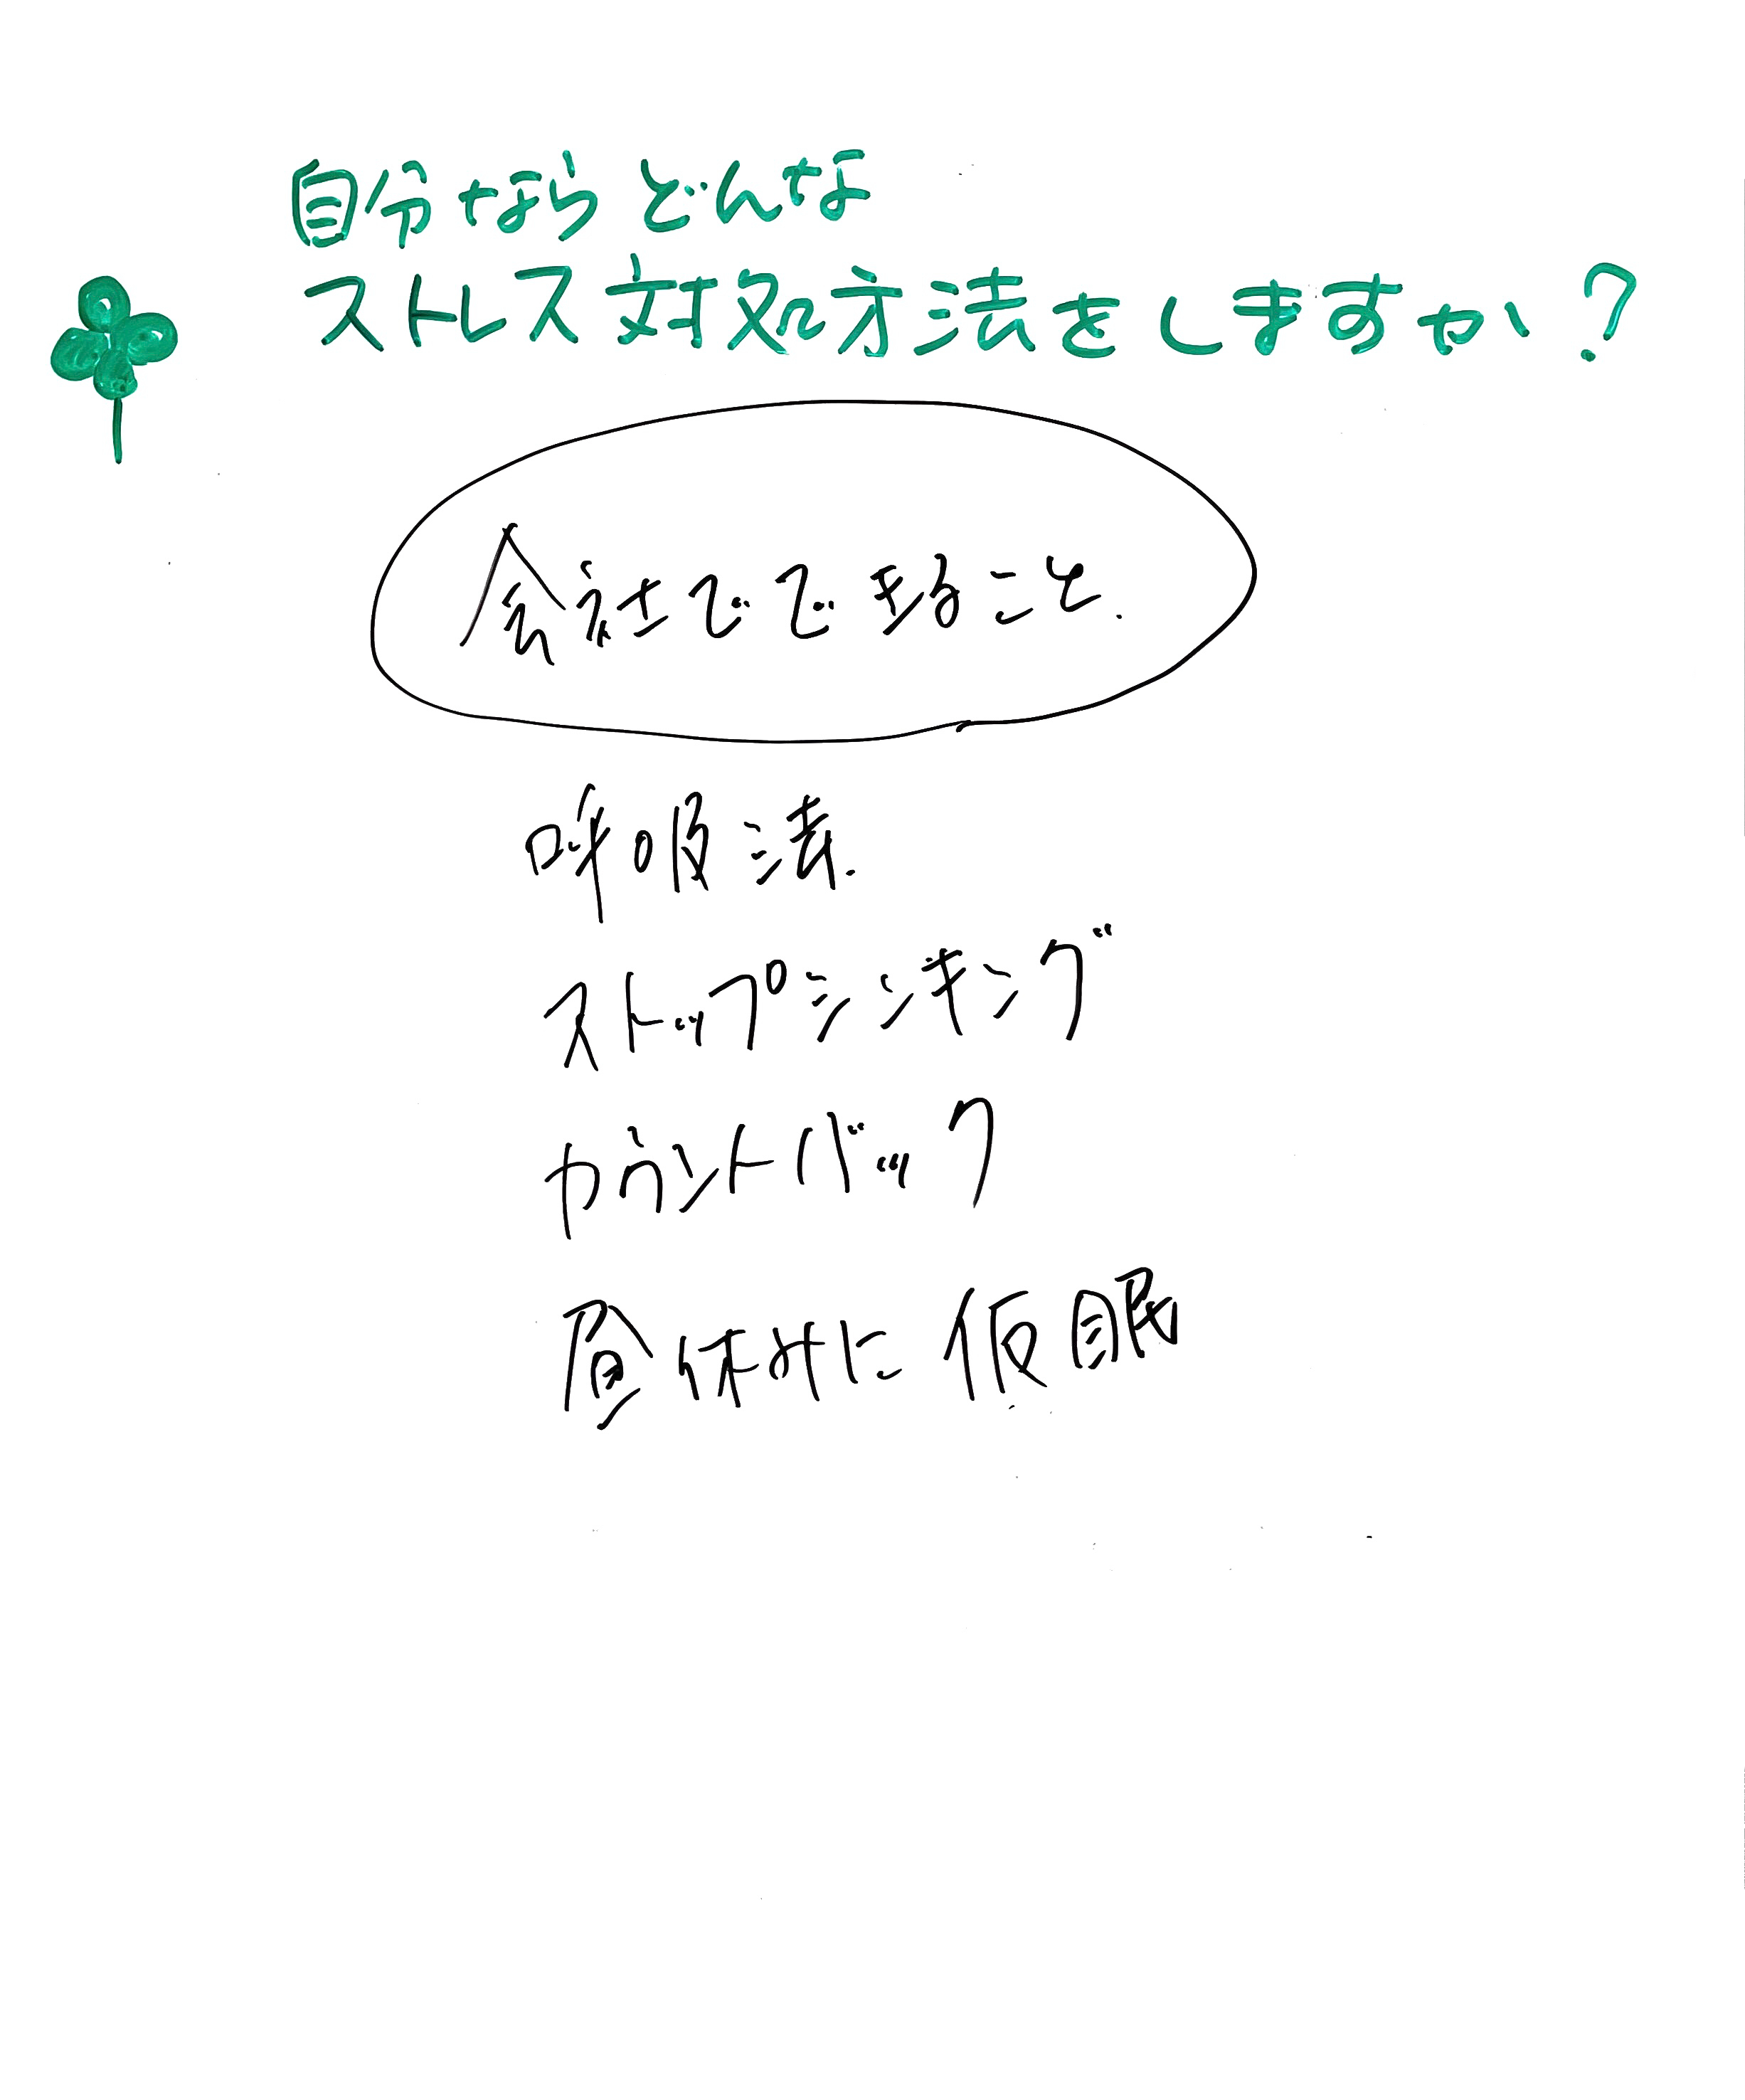 自分ならどんな
ストレス対処方法をしますか？
会社でできること.
呼吸法.
ストップシンキング
カウントバック
昼休みに仮眠